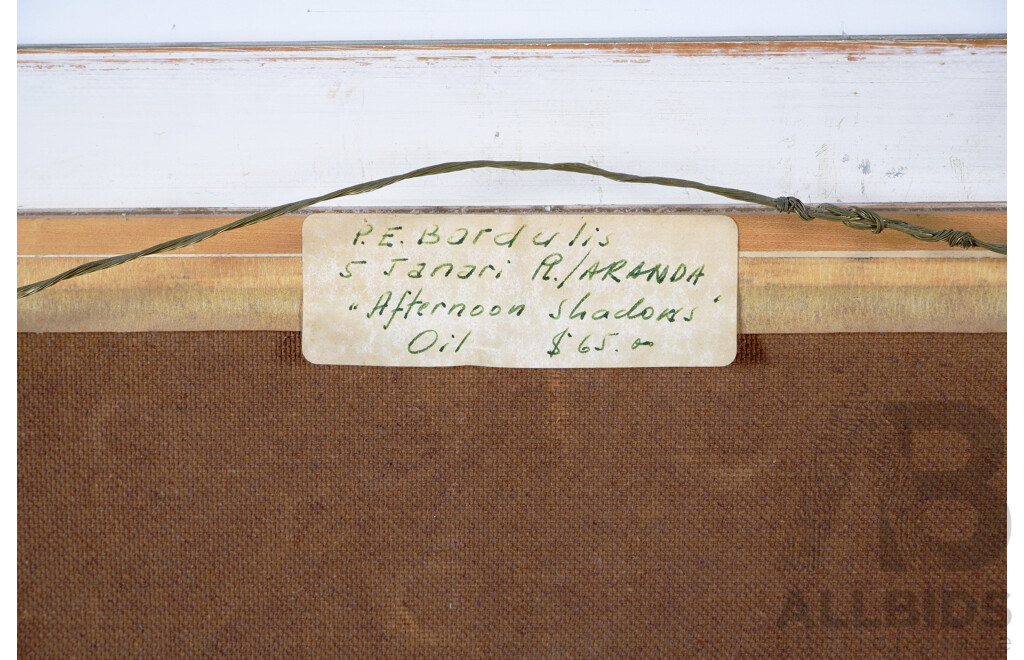 P.E. Bardulis
5 Janari Pl./ARANDA
"Afternoon Shadows"
Oil $65.00
ALLBIDS